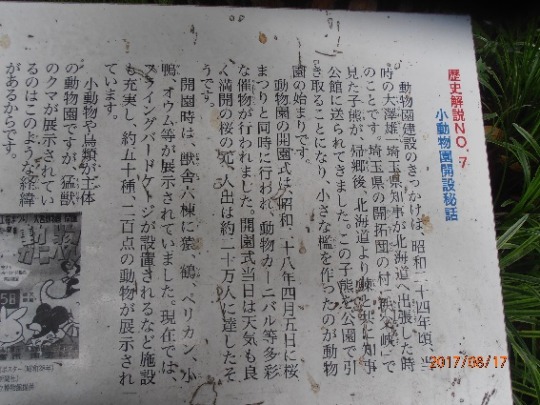 歴史解説NO.7
小動物園開設秘話
動物園建設のきっかけは、昭和二十四年頃、当
時の大澤雄一埼玉県知事が北海道へ出張した時
のことです。埼玉県の開拓団の村「」で
見た子熊が、帰郷後、北海道より と共に知事
公館に送られてきました。この子熊を公園で引
き取ることになり、小さな檻を作ったのが動物
園の始まりです。
動物園の開園式は、昭和二十八年四月五日に桜
まつりと同時に行われ、動物カーニバル等多彩
な催物が行われました。開園式当日は天気も良
く満開の桜の元、人出は約二十万人に達したそ
うです。
開園時は、獣舎六棟に猿、鶴、ペリカン、小
鴨、オウム等が展示されていました。現在では、
フライングバードケージが設置されるなど施設
も充実し、約五十種、二百点の動物が展示され
ています。
小動物や鳥類が主体
の動物園ですが、猛獣
のクマが展示されてい
るのはこのような経緯
があるからです。
動物
カーニバル
2017/08/17